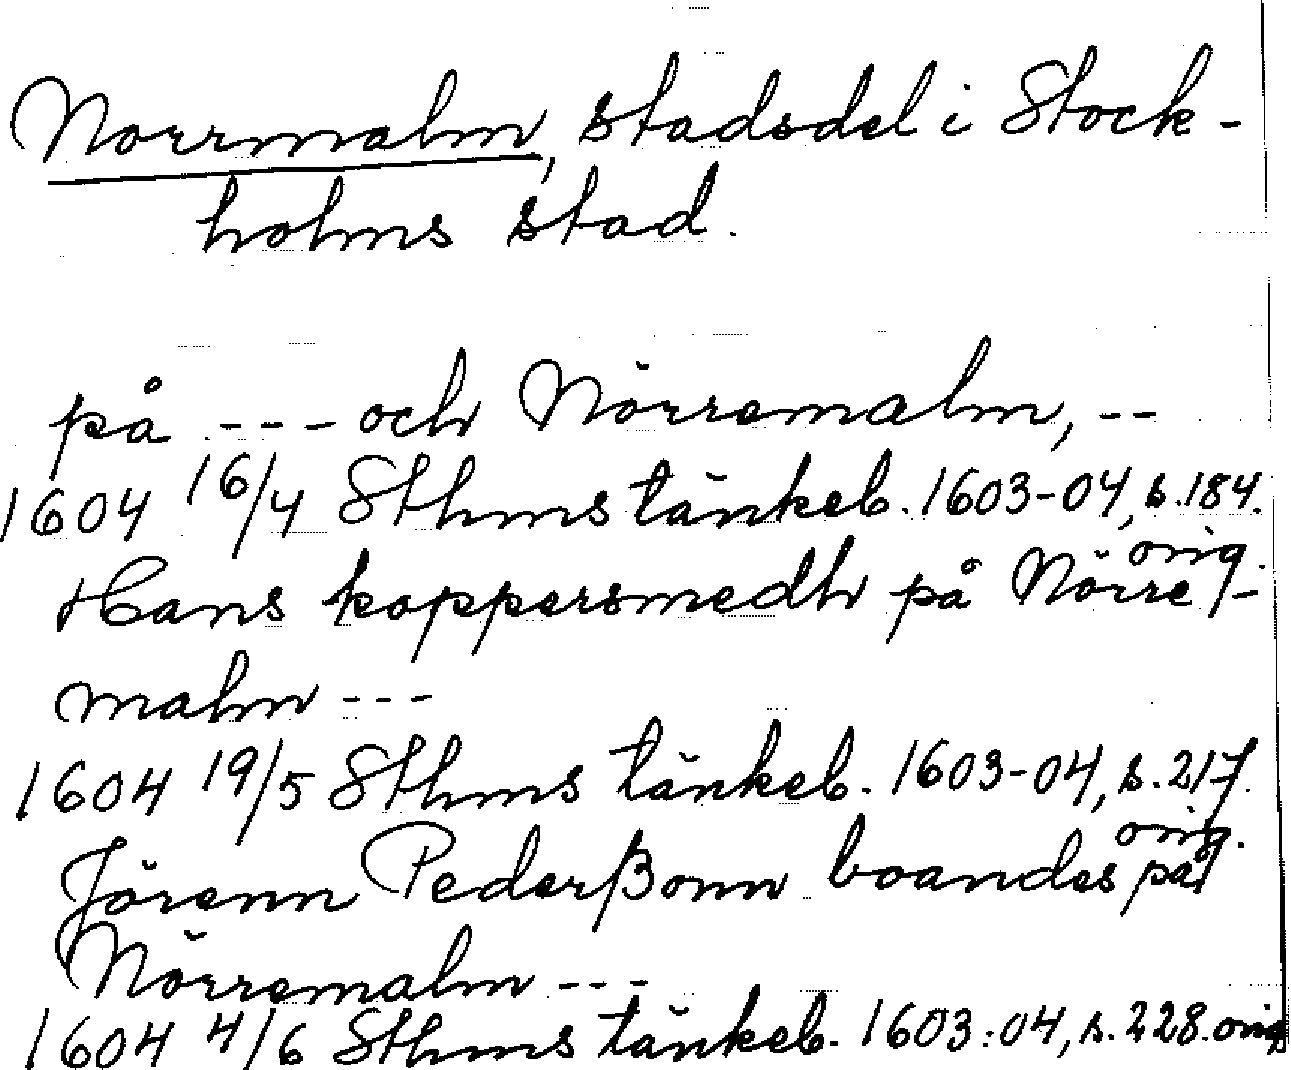 Norrmalm, stadsdel i Stock-
holms stad.
på --- och Nörremalm, --
1604 16/4 Sthms tänkeb. 1603-04, s. 184.
orig.
Hans koppersmedh på Nörre-
malm ---
1604 19/5 Sthms tänkeb. 1603-04, s. 217.
orig.
Jörenn Pederßonn boandes på
Nörremalm ---
1604 4/6 Sthms tänkeb. 1603-04, s. 228. orig